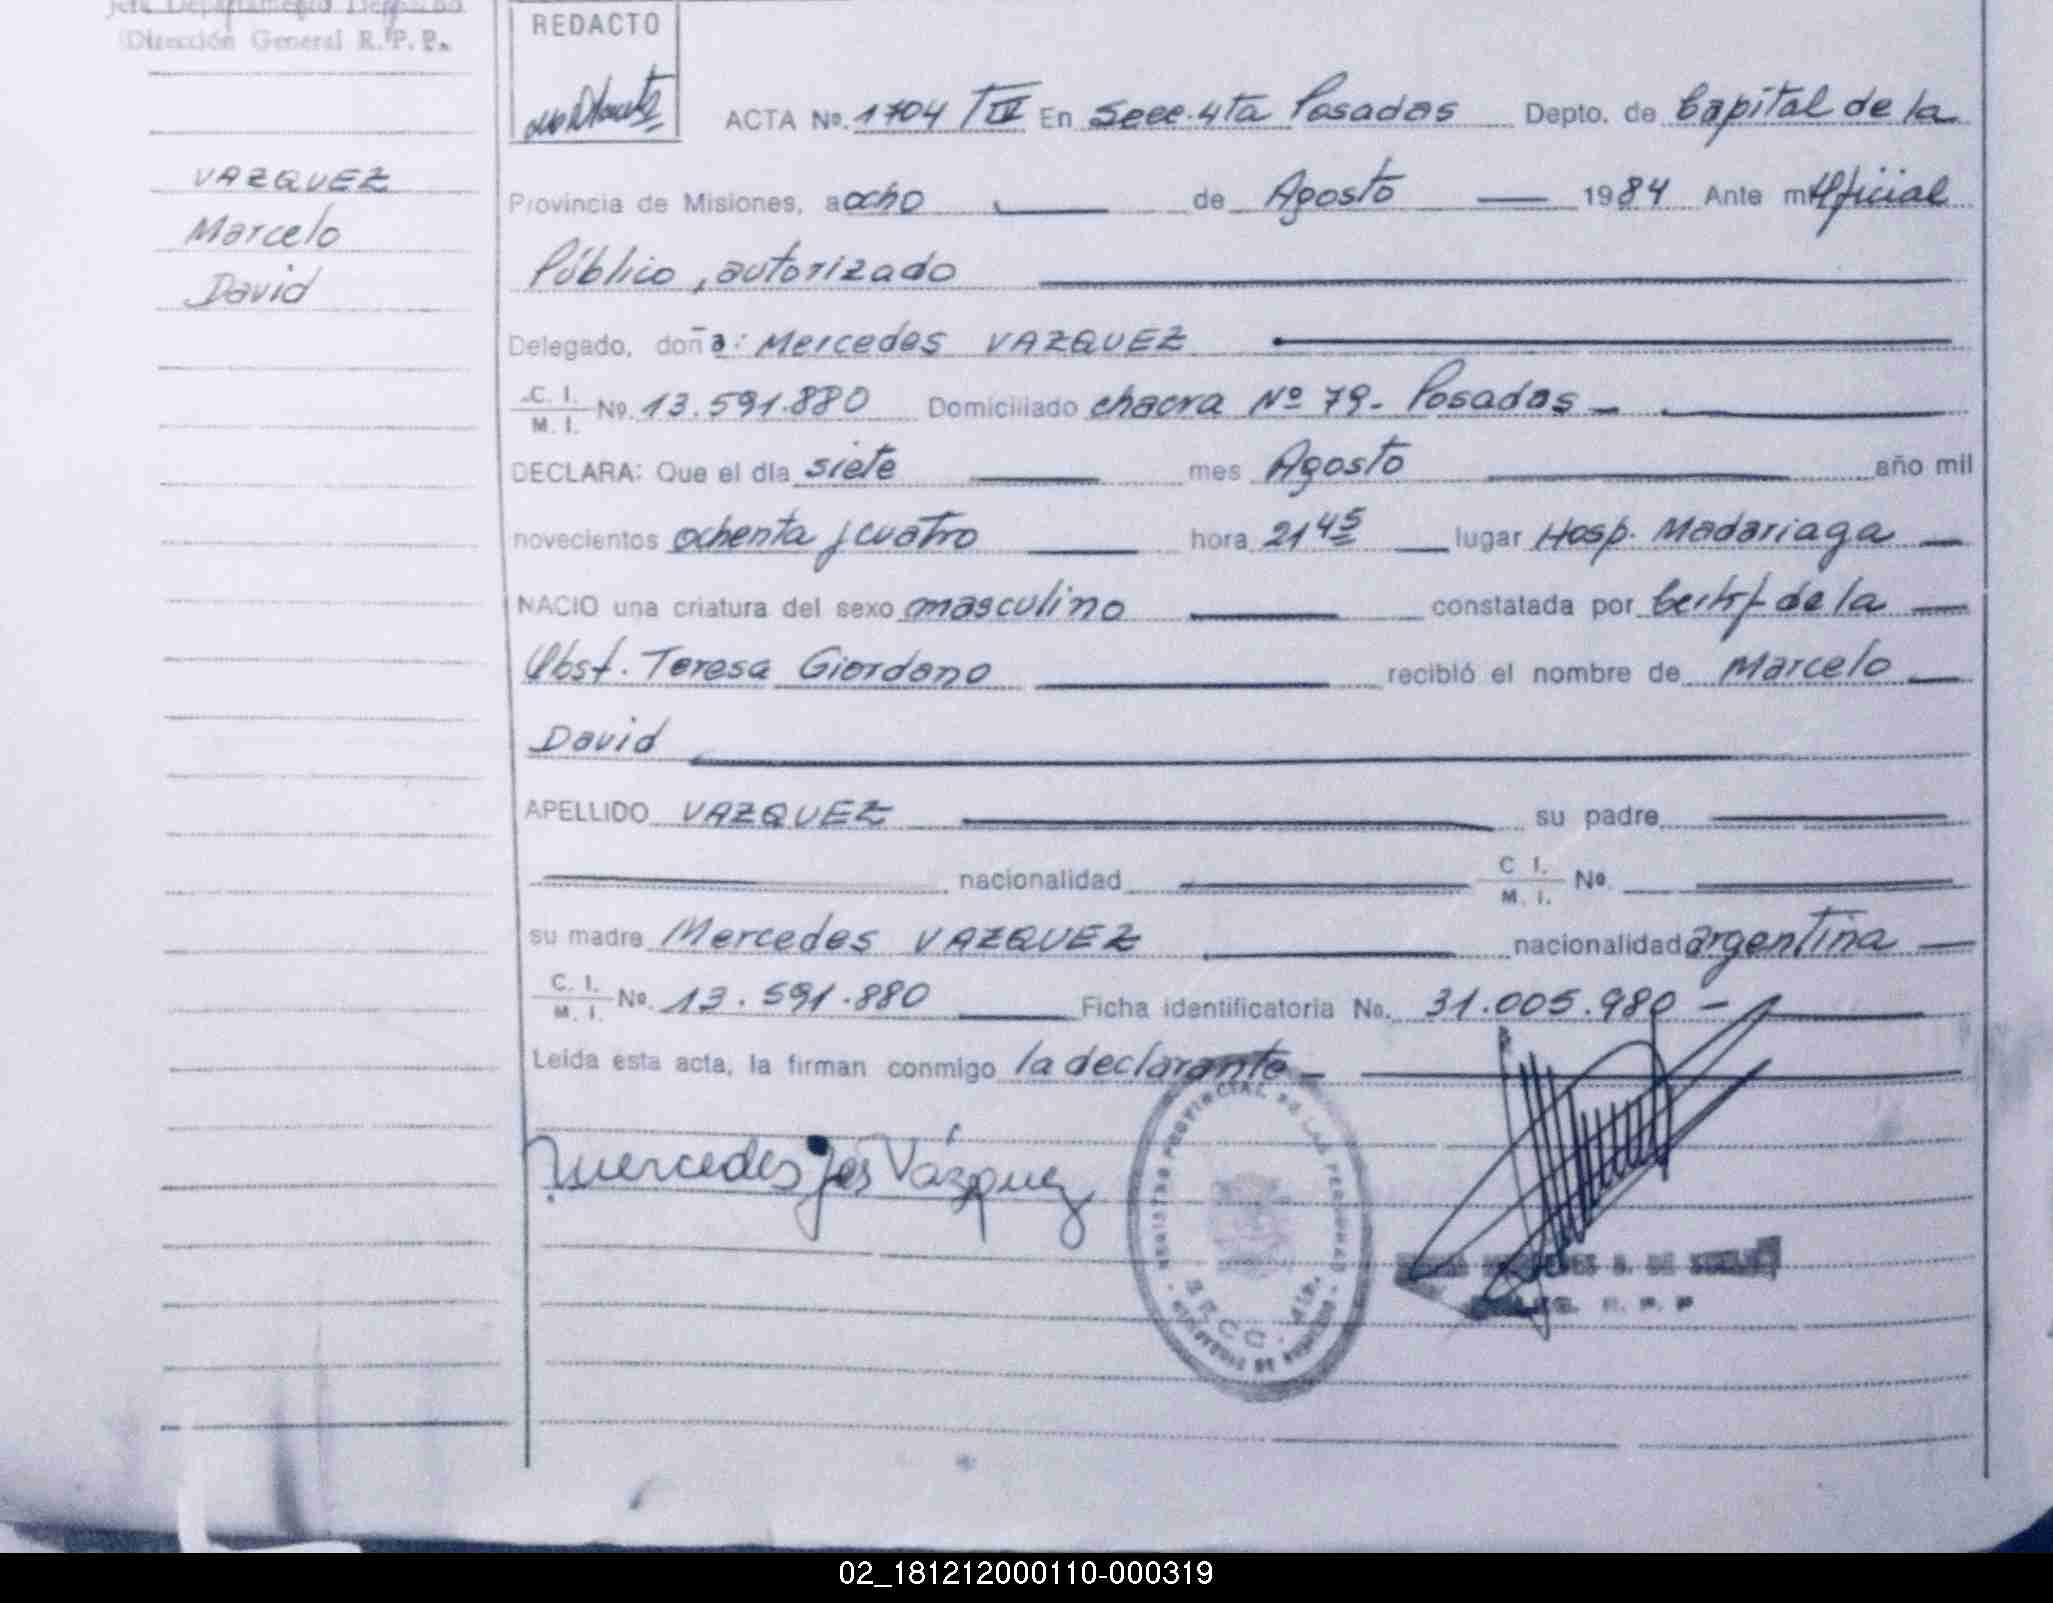 Jefe Departamento Despacho
Dirección General R. P. P.
REDACTO
VAZQUEZ
Marcelo
David
ACTA No. 1704 T IV En Secc. 4ta Posadas Depto. de Capital de la
Provincia de Misiones, a ocho de Agosto 1984 Ante mí Oficial
Público, autorizado
Delegado, doña: Mercedes VAZQUEZ
C. I.
M. I. No. 13.591.880 Domiciliado chacra Nº 79- Posadas
DECLARA: Que el día siete mes Agosto año mil
novecientos ochenta y cuatro hora 21 45 lugar Hosp. Madariaga
NACIO una criatura del sexo masculino constatada por Certif de la
Obst. Teresa Giordano recibió el nombre de Marcelo
David
APELLIDO VAZQUEZ su padre
nacionalidad C I. M. I. No.
su madre Mercedes VAZQUEZ nacionalidad argentina
C. I.
M. I. No. 13.591.880 Ficha identificatoria No. 31.005.980 -
Leída esta acta, la firman conmigo la declarante -
Mercedes Vázquez
REGISTRO PROVINCIAL DE LAS PERSONAS
SECC. 4ta.
R. P. P
02_181212000110-000319